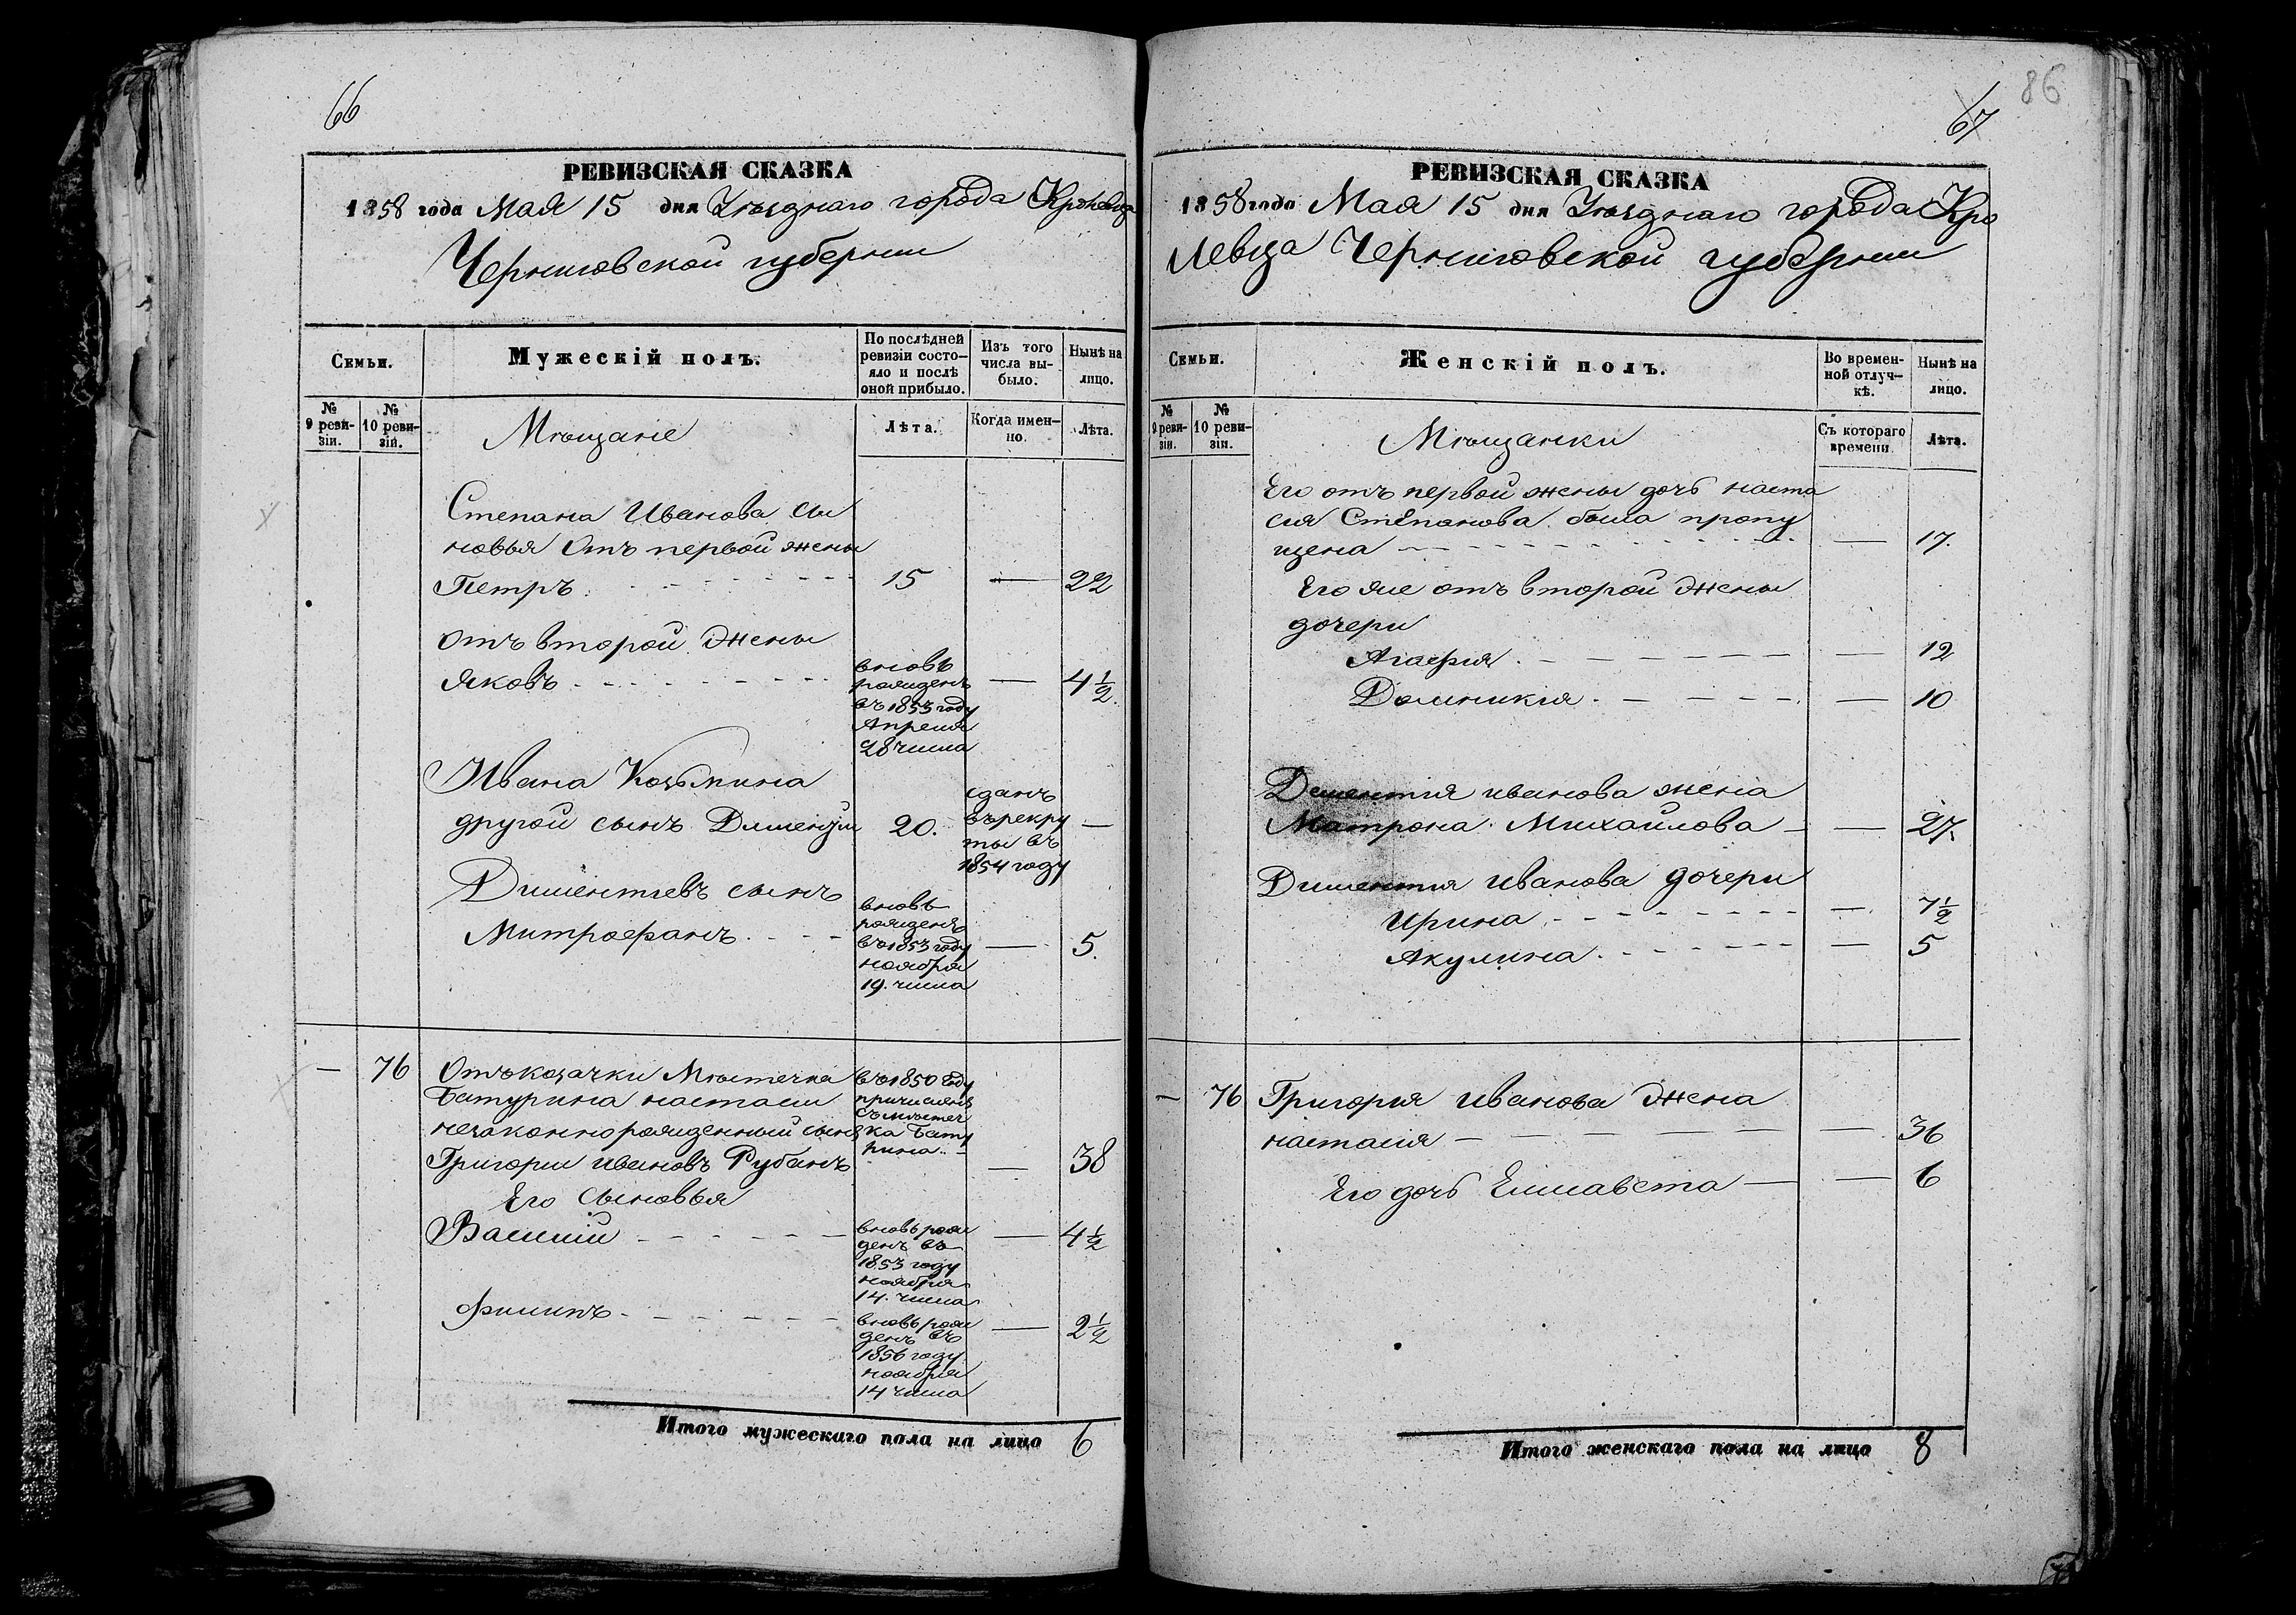 66
РЕВИЗСКАЯ СКАЗКА
1858 года Мая 15 дня Уѣзднаго города Кролевца
Черниговской губернии
Семьи.
Мужескій полъ.
По послѣдней ревизіи состояло и послѣ оной прибыло.
Изъ того числа выбыло.
Нынѣ на лицо.
№ 9 ревизіи.
№ 10 ревизіи.
Мѣщане
Лѣта.
Когда именно.
Лѣта.
Степана Иванова сы
новья Отъ первой жены
Петръ 15 — 22
Отъ второй жены
Яковъ — 4 1/2
вновь
рожденъ
въ 1853 году
Апреля
28 числа
Ивана Козьмина
другой сынъ Дементий 20. —
сданъ
въ рекру
ты въ
1854 году
Диментиевъ сынъ
Митрофанъ — 5.
вновь
рожденъ
въ 1853 году
ноября
19. числа
— 76 Отъ козачки Мѣстечка
Батурина настасии
незаконнорожденный сынъ
Григорий Ивановъ Рубанъ — 38
въ 1850 году
причисленъ
съ мѣстеч
ка Бату
рина
Его сыновья
Василий — 4 1/2
вновь рож
денъ въ
1853 году
ноября
14. числа
Филипъ — 2 1/2
вновь рож
денъ въ
1856 году
ноября
14 числа
Итого мужескаго пола на лицо 6
86
67
РЕВИЗСКАЯ СКАЗКА
1858 года Мая 15 дня Уѣзднаго города Кро
левца Черниговской губернии
Семьи.
Женскій полъ.
Во временной отлучкѣ.
Нынѣ на лицо.
№ 9 ревизіи.
№ 10 ревизіи.
Мѣщанки
Съ котораго времени
Лѣта.
Его отъ первой жены дочь наста
сия Степанова была пропу
щена — 17.
Его же отъ второй жены
дочери
Агафия — 12
Домникия — 10
Дементия иванова жена
Матрона Михайлова — 27.
Диментия Иванова дочери
Ирина — 7 1/2
Акулина — 5
— 76 Григория Иванова жена
настасия — 36
Его дочь Елисавета — 6
Итого женскаго пола на лицо 8